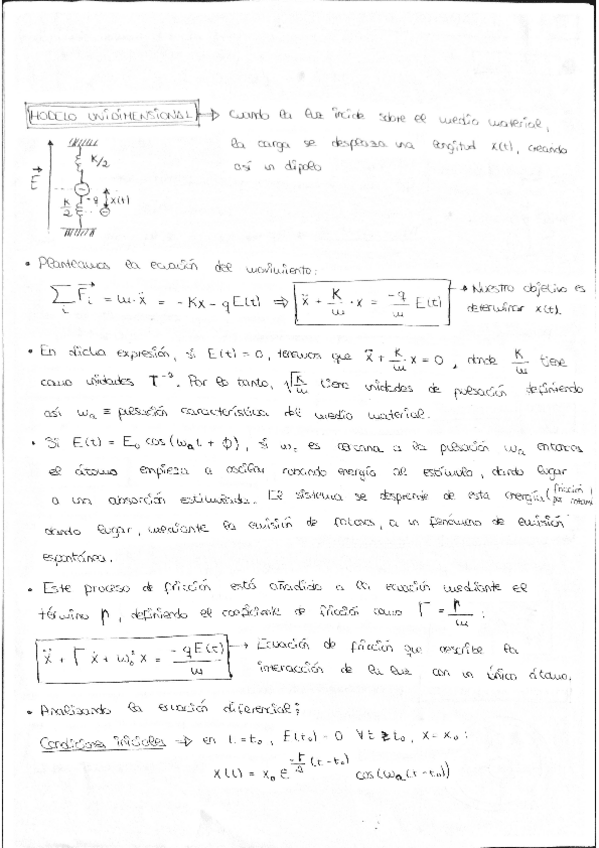 MODELO UNIDIMENSIONAL → Cuando la luz incide sobre el medio material,
la carga se desplaza una longitud x(t), creando
así un dipolo
K/2
E
-q
x(t)
K/2
• Planteamos la ecuación del movimiento:
∑i Fi = m·ẍ = -Kx - qE(t) ⇒ ẍ + K/m · x = -q/m E(t) → Nuestro objetivo es
determinar x(t).
• En dicha expresión, si E(t) = 0, tenemos que ẍ + K/m · x = 0, donde K/m tiene
como unidades T⁻². Por lo tanto, √K/m tiene unidades de pulsación definiendo
así ωa ≡ pulsación característica del medio material.
• Si E(t) = E₀ cos(ωat + ϕ), si ω es cercana a la pulsación ωa entonces
el átomo empieza a oscilar robando energía al estímulo, dando lugar
a una absorción estimulada. El sistema se desprende de esta energía (fricción
dando lugar, mediante la emisión de fotones, a un fenómeno de emisión
espontánea.
• Este proceso de fricción está añadido a la ecuación mediante el
término p, definiendo el coeficiente de fricción como Γ = p/m :
ẍ + Γẋ + ω₀²x = -qE(t)/m → Ecuación de fricción que describe la
interacción de la luz, con un único átomo.
• Analizando la ecuación diferencial:
Condiciones iniciales → en t = t₀, E(t₀) = 0 ∀t ≥ t₀, x = x₀ :
x(t) = x₀ e^(-Γ/2 (t - t₀)) cos(ωa(t - t₀))